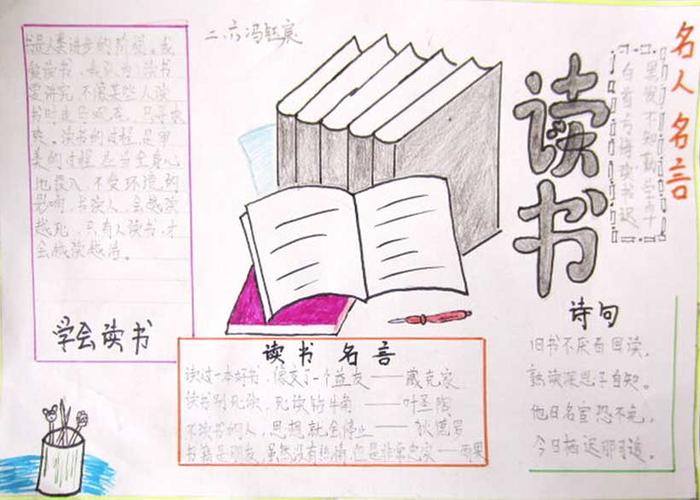 二.六冯钰宸
书是人类进步的阶梯。我
爱读书,我认为,读书
要讲究,不像某些人读
书时走马观花,只寻求
快。读书的过程是审
美的过程,应当全身心
地投入,不受环境的
影响,书读人,会越读
越死,只有人读书,才
会越读越活。
学会读书
读书
名人名言
黑发不知勤学早
白首方悔读书迟
读书 名言
读过一本好书,像交了一个益友——臧克家
读书别死读,死读钻牛角——叶圣陶
不读书的人,思想就会停止——狄德罗
书籍是朋友,虽然没有热情,但是非常忠实——雨果
诗句
旧书不厌百回读,
熟读深思子自知。
他日名宦恐不免,
今日栖迟那可追。